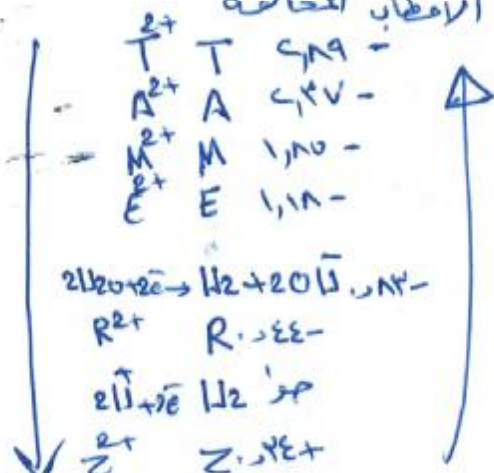 الأقطاب
T²⁺ T ٢,٨٩ -
A²⁺ A ٢,٣٧ -
M²⁺ M ١,٨٥ -
E²⁺ E ١,١٨ -
2H₂O+2e⁻→H₂+2OH⁻ ٠,٨٣ -
R²⁺ R ٠,٤٤ -
2H⁺+2e⁻ H₂ صفر
Z²⁺ Z ٠,٣٤ +